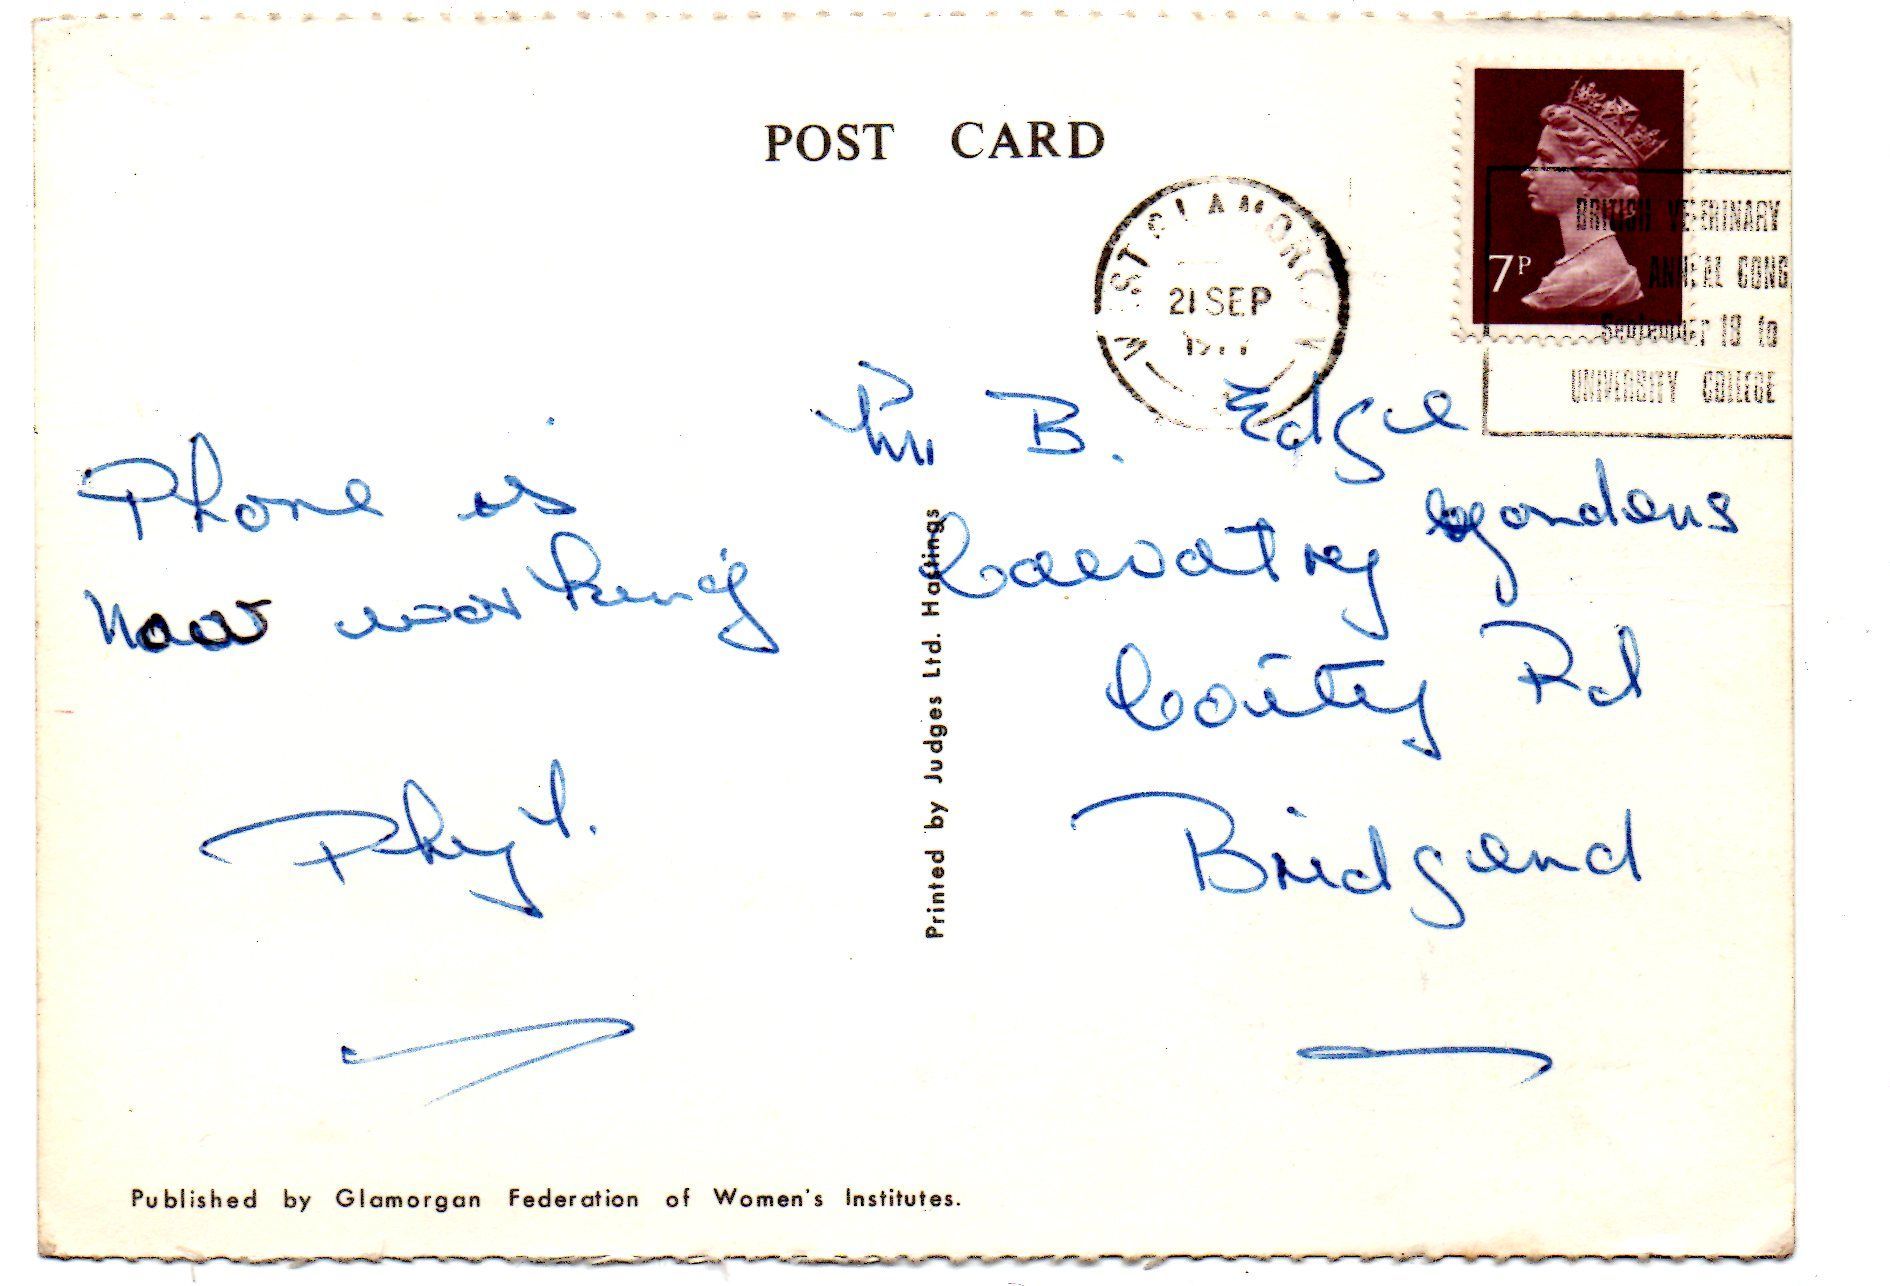 POST CARD
WEST GLAMORGAN
21 SEP
1977
7P
BRITISH VETERINARY
ANNUAL CONG
September 18 to
UNIVERSITY COLLEGE
Phone is
now working
Phyl.
B. Edge
gardens
Coity Rd
Bridgend
Printed by Judges Ltd. Hastings
Published by Glamorgan Federation of Women's Institutes.